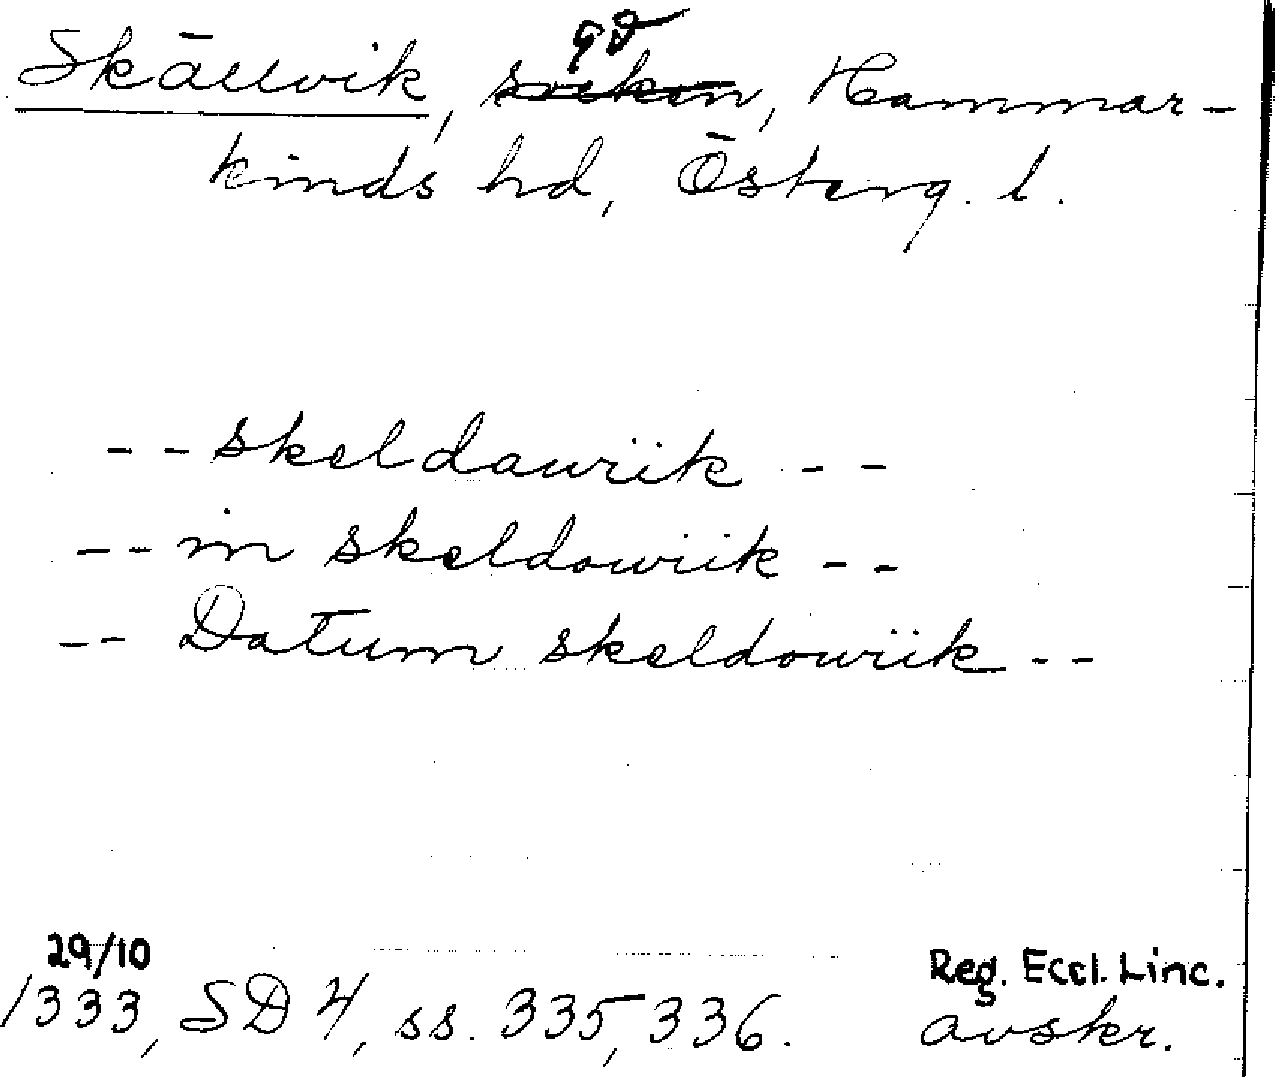 gd
Skällvik, socken, Hammar-
kinds hd, Österg. l.
-- skeldawiik --
-- in skeldowiik --
-- Datum skeldowiik --
29/10
1333, SD 4, ss. 335, 336.
Reg. Eccl. Linc.
avskr.